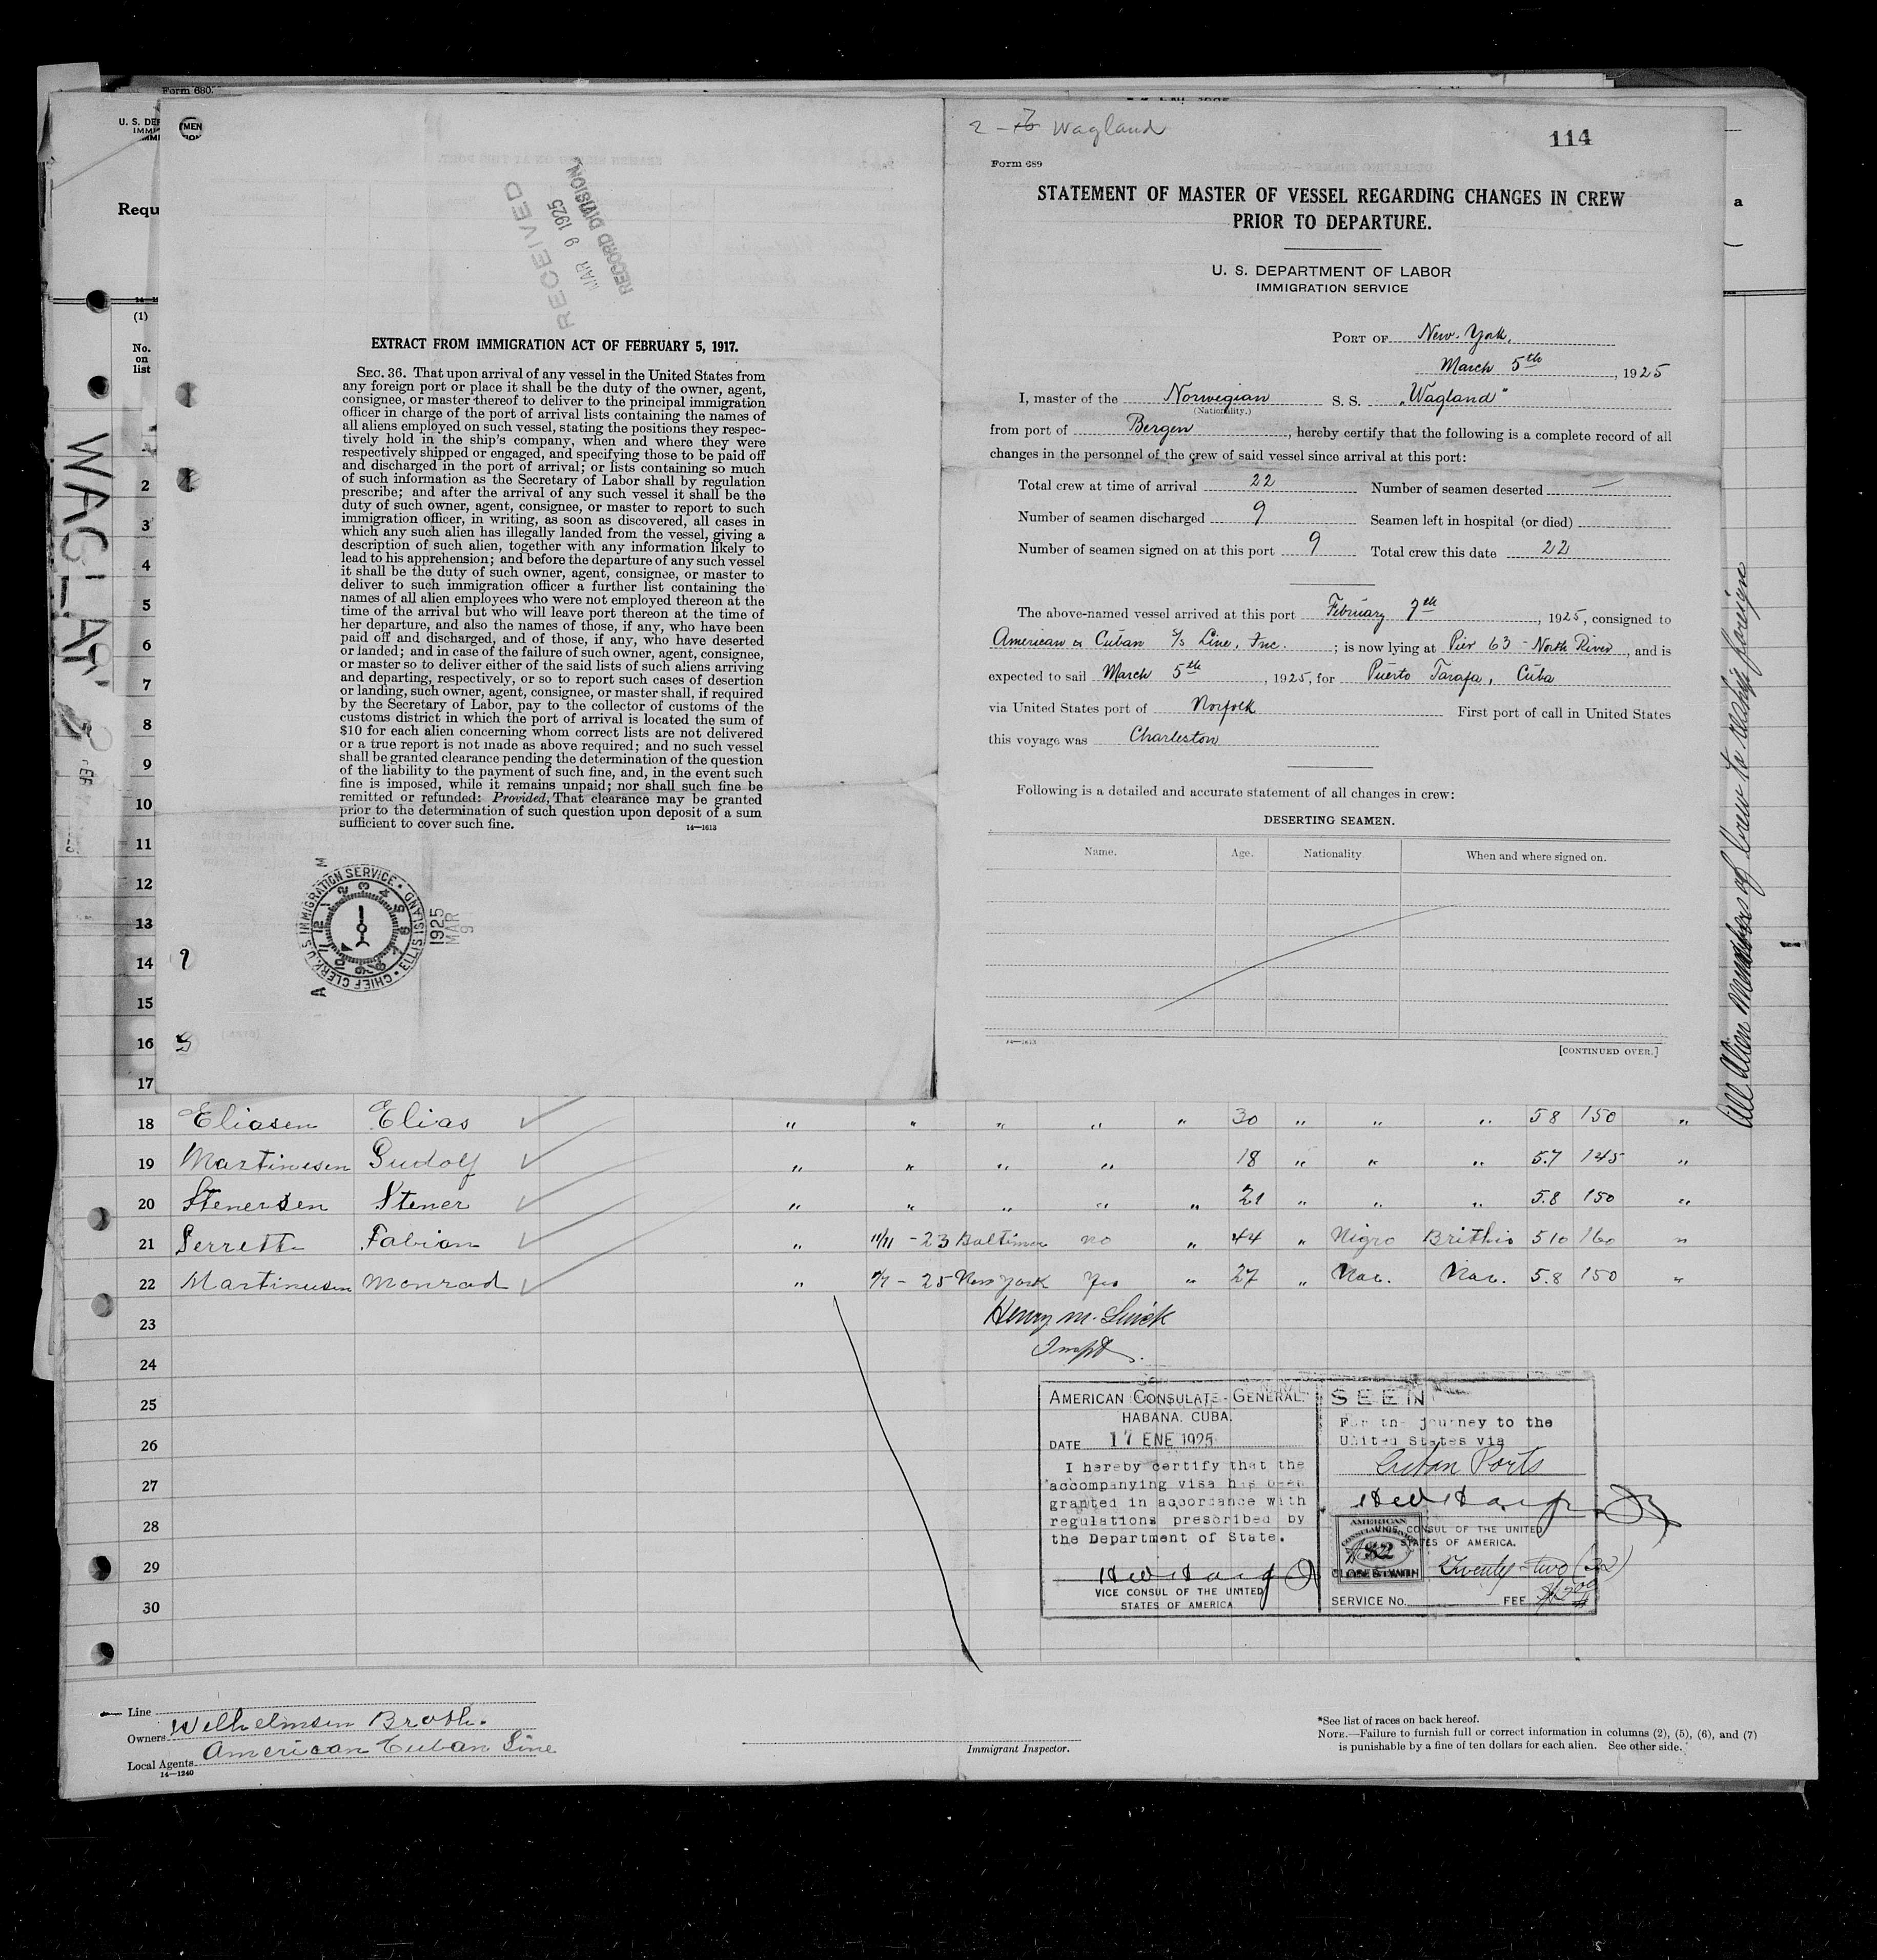 Form 680.
U. S. DEP
IMMI
Requ
14—1
(1)
No.
on
list
WAGLA
2
3
4
5
6
7
8
9
10
11
12
13
14
15
16
17
RECEIVED
MAR 9 1925
RECORD DIVISION
EXTRACT FROM IMMIGRATION ACT OF FEBRUARY 5, 1917.
SEC. 36. That upon arrival of any vessel in the United States from
any foreign port or place it shall be the duty of the owner, agent,
consignee, or master thereof to deliver to the principal immigration
officer in charge of the port of arrival lists containing the names of
all aliens employed on such vessel, stating the positions they respec-
tively hold in the ship's company, when and where they were
respectively shipped or engaged, and specifying those to be paid off
and discharged in the port of arrival; or lists containing so much
of such information as the Secretary of Labor shall by regulation
prescribe; and after the arrival of any such vessel it shall be the
duty of such owner, agent, consignee, or master to report to such
immigration officer, in writing, as soon as discovered, all cases in
which any such alien has illegally landed from the vessel, giving a
description of such alien, together with any information likely to
lead to his apprehension; and before the departure of any such vessel
it shall be the duty of such owner, agent, consignee, or master to
deliver to such immigration officer a further list containing the
names of all alien employees who were not employed thereon at the
time of the arrival but who will leave port thereon at the time of
her departure, and also the names of those, if any, who have been
paid off and discharged, and of those, if any, who have deserted
or landed; and in case of the failure of such owner, agent, consignee,
or master so to deliver either of the said lists of such aliens arriving
and departing, respectively, or so to report such cases of desertion
or landing, such owner, agent, consignee, or master shall, if required
by the Secretary of Labor, pay to the collector of customs of the
customs district in which the port of arrival is located the sum of
$10 for each alien concerning whom correct lists are not delivered
or a true report is not made as above required; and no such vessel
shall be granted clearance pending the determination of the question
of the liability to the payment of such fine, and, in the event such
fine is imposed, while it remains unpaid; nor shall such fine be
remitted or refunded: Provided, That clearance may be granted
prior to the determination of such question upon deposit of a sum
sufficient to cover such fine.
14—1613
CHIEF CLERK, U.S. IMMIGRATION SERVICE • ELLIS ISLAND
1925 MAR 9
Wagland
114
Form 689
STATEMENT OF MASTER OF VESSEL REGARDING CHANGES IN CREW
PRIOR TO DEPARTURE.
U. S. DEPARTMENT OF LABOR
IMMIGRATION SERVICE
PORT OF New York,
March 5th, 1925
I, master of the Norwegian S. S. „Wagland"
(Nationality.)
from port of Bergen, hereby certify that the following is a complete record of all
changes in the personnel of the crew of said vessel since arrival at this port:
Total crew at time of arrival 22 Number of seamen deserted —
Number of seamen discharged 9 Seamen left in hospital (or died)
Number of seamen signed on at this port 9 Total crew this date 22
The above-named vessel arrived at this port February 7th, 1925, consigned to
American & Cuban S/S Line, Inc.; is now lying at Pier 63 - North River, and is
expected to sail March 5th, 1925, for Puerto Tarafa, Cuba
via United States port of Norfolk First port of call in United States
this voyage was Charleston
Following is a detailed and accurate statement of all changes in crew:
DESERTING SEAMEN.
Name. Age. Nationality When and where signed on.
14—1613
[CONTINUED OVER.]
All Alien Members of Crew to reship foreign
18 Eliasen Elias " " " " " 30 " " " 58 150 "
19 Martinusen Gudolf " " " " 18 " " " 5.7 145 "
20 Stenersen Stener " " " " " 21 " " " 5.8 150 "
21 Perrett Fabian " 11/11 - 23 Baltimore no " 44 " Nigro Brithis 510 160 "
22 Martinusen Monrad " - 25 New York Yes " 27 " Nor. Nor. 5.8 150 "
23
24
25
26
27
28
29
30
Henry M.
Inspt.
AMERICAN CONSULATE-GENERAL
HABANA. CUBA.
DATE 17 ENE 1925
I hereby certify that the
accompanying visa has been
granted in accordance with
regulations prescribed by
the Department of State.
VICE CONSUL OF THE UNITED
STATES OF AMERICA
SEEN
For the journey to the
United States via
Cuban Ports
VICE CONSUL OF THE UNITED
STATES OF AMERICA.
AMERICAN
$2
Twenty-two (22)
SERVICE No. FEE
Line
Owners Wilhelmsen Broth.
Local Agents American Cuban Line
14—1240
Immigrant Inspector.
*See list of races on back hereof.
NOTE.—Failure to furnish full or correct information in columns (2), (5), (6), and (7)
is punishable by a fine of ten dollars for each alien. See other side.